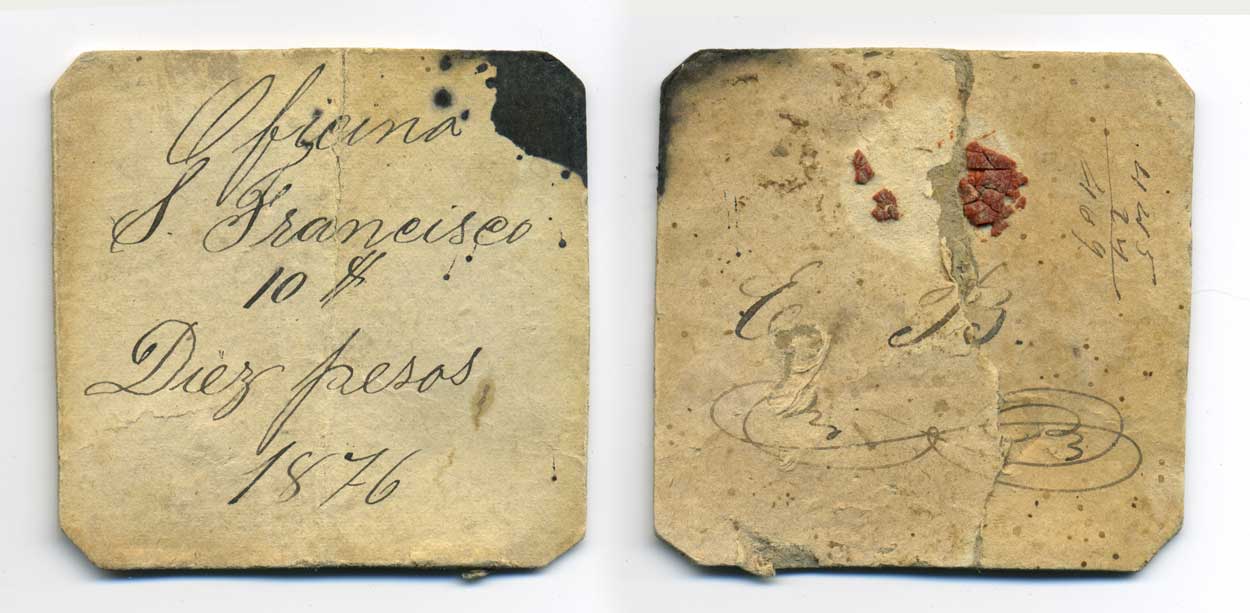 Oficina
S. Francisco
10 $
Diez pesos
1876
E. B.